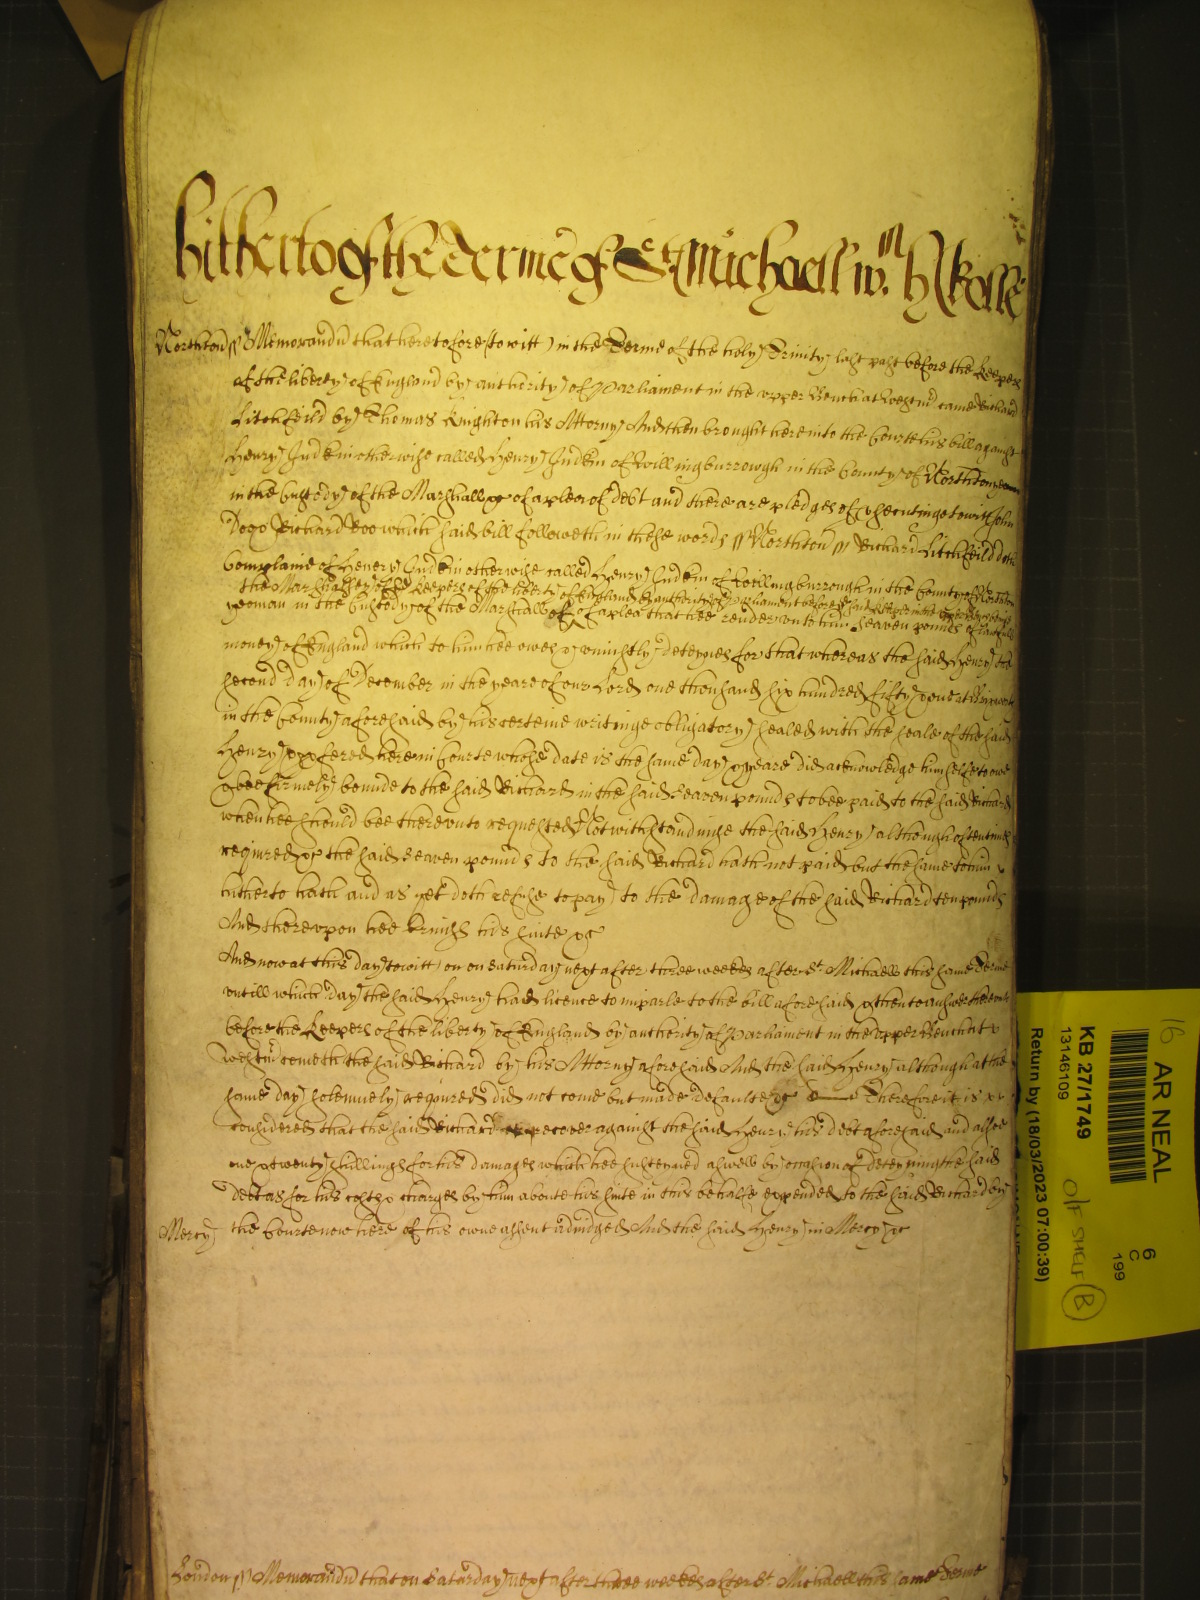 hitherto of the Terme of St Michaell w.th h Rolle
Northton ss Memorandu that heretofore (to witt) in the Terme of the holy Trinity last past before the Keepers
of the liberty of England by authority of Parliament in the upper Bench at Westmr came Richard
Litchfeild by Thomas Knighton his Attorny And then brought here into the Courte his bill against
Henry Judkin otherwise called Henry Judkin of Willingburrowgh in the County of Northton yeoman
in the Custody of the Marshall &c of a plea of debt and there are pledges of prosecutinge to witt John
Doo & Richard Roo which said bill followeth in these words ss Northton ss Richard Litchfeild doth
Complaine of Henery Judkin otherwise called Henry Judkin of Willingburrough in the County of Northton
the Marshalsey of the Keepers of the liberty of England by authority of Parliament before the said Keepers in the upper Bench being
yeoman in the Custody of the Marshall of a plea that hee render unto him seaven pounds of lawfull
money of England which to him hee owes & uniustly deteynes for that whereas the said Henry the
second day of December in the yeare of our Lord one thousand six hundred fifty & one at
in the County aforesaid by his certeine writinge obligatory sealed with the seale of the said
Henry & offered here in Courte whose date is the same day & yeare did acknowledge himselfe to owe
& bee firmely bounde to the said Richard in the said seaven pounds to bee paid to the said Richard
when hee should bee thereunto requested Notwithstandinge the said Henry although oftentimes
required &c the said seaven pounds to the said Richard hath not paid but the same to him
hitherto hath and as yet doth refuse to pay to the damage of the said Richard ten pounds
And thereupon hee bringes his suite &c
And now at this day to witt on on Saturday next after three weekes after St Michaell this same Terme
untill which day the said Henry had licence to imparle to the bill aforesaid & then to answer thereunto
before the Keepers of the liberty of England by authority of Parliament in the upper Bench att
Westmr cometh the said Richard by his Attorny aforesaid And the said Henry although at the
same day solemnely required did not come but made defaulte &c Therefore it is
considered that the said Richard recover against the said Henry his debt aforesaid and alsoe
one & twenty shillings for his damages which hee susteyned aswell by occasion of deteyning the said
debt as for his costs & charges by him aboute his suite in this behalfe expended to the said Richard by
Mercy the Courte now here of his owne assent adiudged And the said Henry in Mercy &c
London ss Memorandu that on Saturday next after three weekes after St Michaell this same Terme
16 AR NEAL
6
C
199
KB 27/1749
13146109
O/T SHELF B
Return by (18/03/2023 07:00:39)